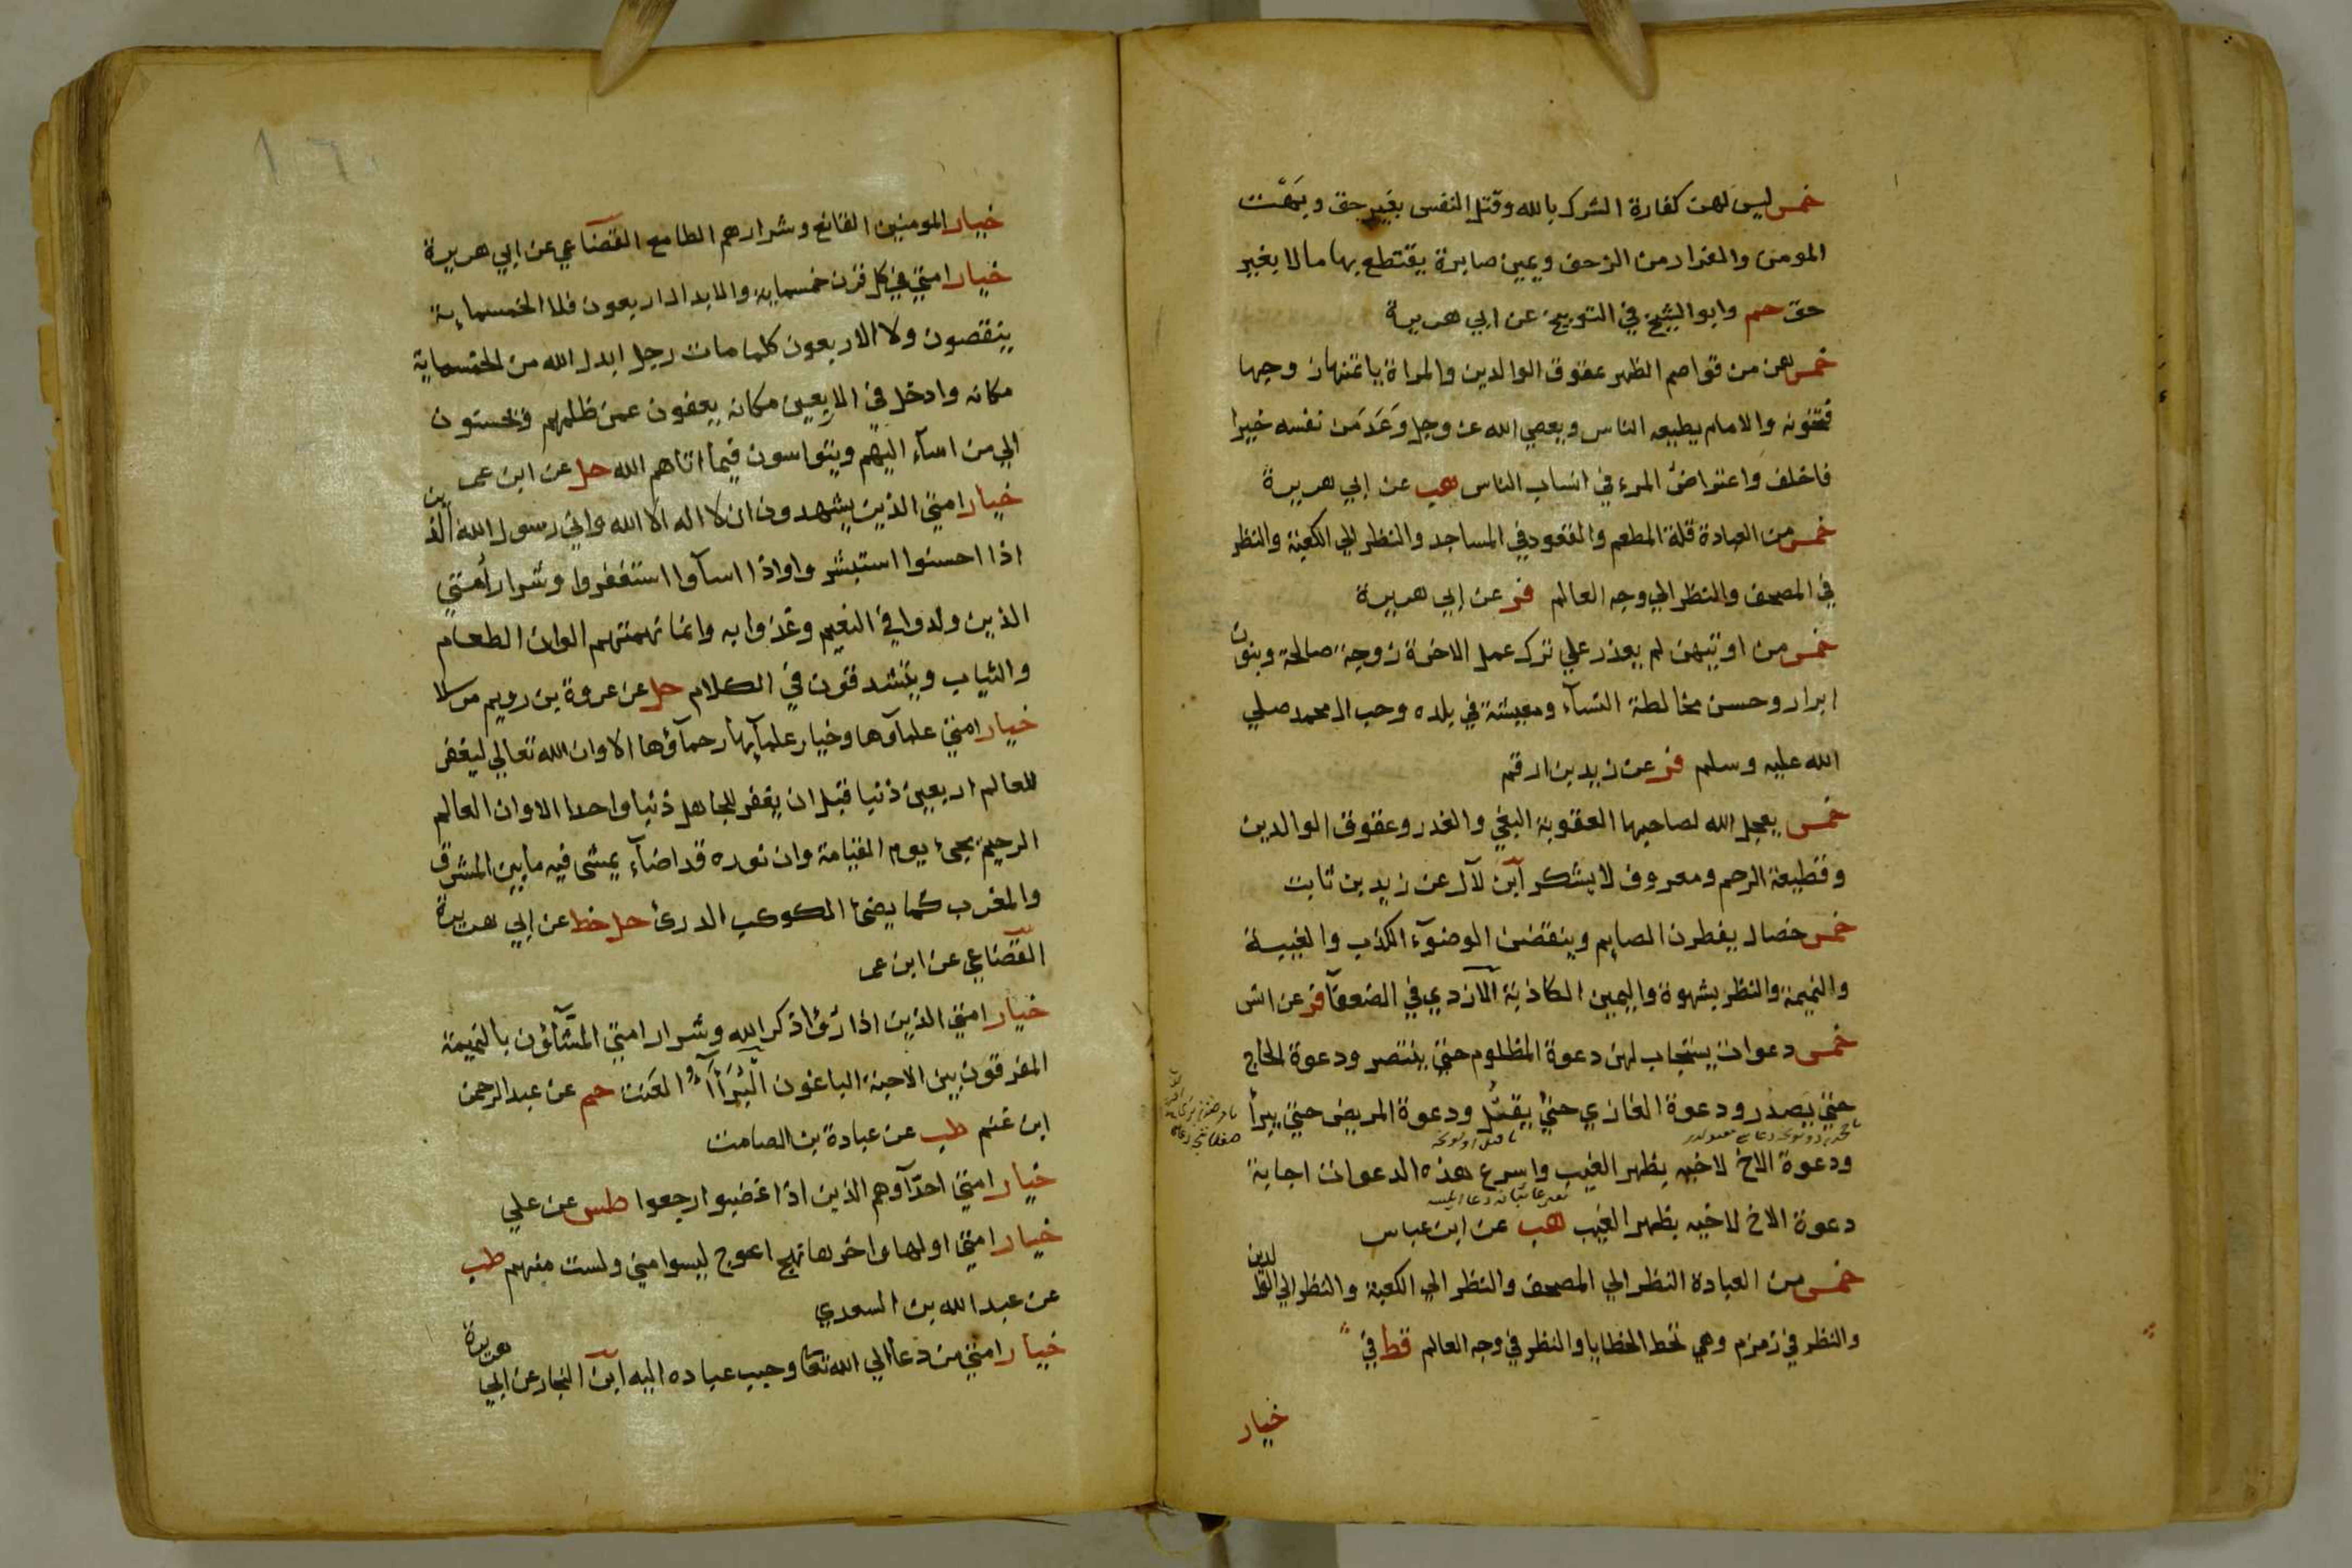 خمس ليس لهن كفارة الشرك بالله وقتل النفس بغير حق وبهت
المومن والفرار من الزحف ويمين صابرة يقتطع بها مالا بغير
حق حم وابو الشيخ في التوبيخ عن ابي هريرة
خمس هن من قواصم الظهر عقوق الوالدين والمراة ياتمنها زوجها
فتخونه والامام يطيعه الناس ويعصي الله عز وجل وَعَدَ مَن نفسه خيرا
فاخلف واعتراض المرء في انساب الناس هب عن ابي هريرة
خمس من العبادة قلة المطعم والقعود في المساجد والنظر الي الكعبة والنظر
في المصحف والنظر الي وجه العالم فر عن ابي هريرة
خمس من اوتيهن لم يعذر علي ترك عمل الاخرة زوجة صالحة وبنون
ابرار وحسن مخالطة النسآء ومعيشة في بلده وحب ال محمد صلي
الله عليه وسلم فر عن زيد بن ارقم
خمس يعجل الله لصاحبها العقوبة البغي والغدر وعقوق الوالدين
وقطيعة الرحم ومعروف لا يشكر ابن لآل عن زيد بن ثابت
خمس خصال يفطرن الصايم وينقضن الوضوء الكذب والغيبة
والنميمة والنظر بشهوة واليمين الكاذبة الازدي في الضعفآ فر عن انس
خمس دعوات يستجاب لهن دعوة المظلوم حتي ينتصر ودعوة الحاج
حتي يصدر ودعوة الغازي حتي يقتل ودعوة المريض حتي يبرأ
ودعوة الاخ لاخيه بظهر الغيب واسرع هذه الدعوات اجابة
دعوة الاخ لاخيه بظهر الغيب هب عن ابن عباس
خمس من العبادة النظر الي المصحف والنظر الي الكعبة والنظر الي الوالدين
والنظر في زمزم وهي تحط الخطايا والنظر في وجه العالم قط في
خيار
خيار المومنين القانع وشرارهم الطامع القضاعي عن ابي هريرة
خيار امتي في كل قرن خمسماية والابدال اربعون فلا الخمسماية
ينقصون ولا الاربعون كلما مات رجل ابدل الله من الخمسماية
مكانه وادخل في الاربعين مكانه يعفون عمن ظلمهم ويحسنون
الي من اسآء اليهم ويتواسون فيما اتاهم الله حل عن ابن عمر
خيار امتي الذين يشهدون ان لا اله الا الله واني رسول الله الذين
اذا احسنوا استبشروا واذا اسآوا استغفروا وشرار أمتي
الذين ولدوا في النعيم وغذوا به وانما نهمتهم الوان الطعام
والثياب ويتشدقون في الكلام حل عن عروة بن رويم مرسلا
خيار امتي علماؤها وخيار علمآئها رحمآؤها الا وان الله تعالي ليغفر
للعالم اربعين ذنبا قبل ان يغفر للجاهل ذنبا واحدا الا وان العالم
الرحيم يجئ يوم القيامة وان نوره قد اضآء يمشى فيه ما بين المشرق
والمغرب كما يضئ الكوكب الدرئ حل خط عن ابي هريرة
القضاعي عن ابن عمر
خيار امتي الذين اذا رؤا ذكر الله وشرار امتي المشآؤن بالنميمة
المفرقون بين الاحبة الباغون البُرَأآءَ العَنَت حم عن عبد الرحمن
ابن غنم طب عن عبادة بن الصامت
خيار امتي احدّآوهم الذين اذا غضبوا رجعوا طس عن علي
خيار امتي اولها واخرها نهج اعوج ليسوا مني ولست منهم طب
عن عبد الله بن السعدي
خيار امتي من دعا الي الله تعا وحبب عباده اليه ابن النجار عن ابي هريرة